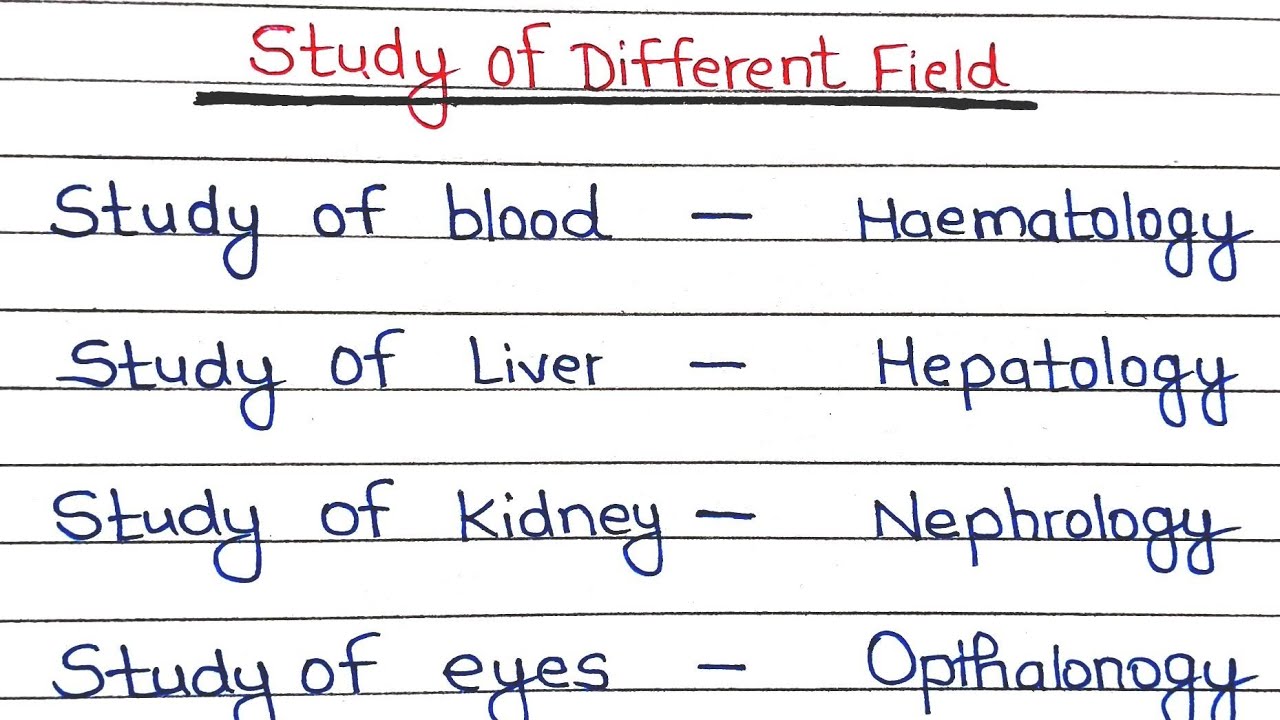 Study of Different Field
Study of blood — Haematology
Study of Liver — Hepatology
Study of Kidney — Nephrology
Study of eyes — Opthalonogy